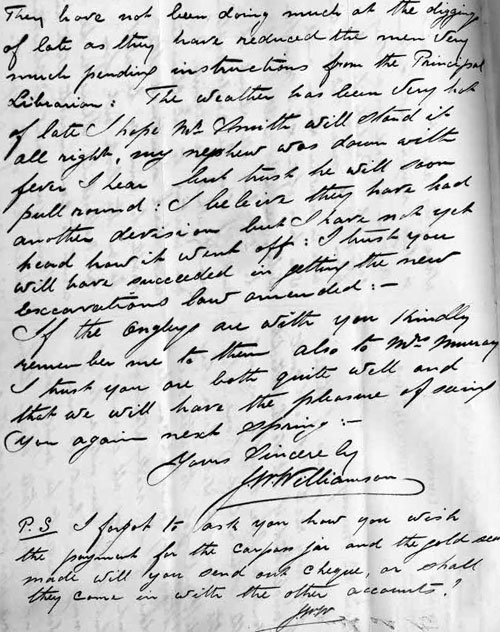 They have not been doing much at the diggings
of late as they have reduced the men very
much pending instructions from the Principal
Librarian: The weather has been very hot
of late I hope Mr Smith will stand it
all right, my nephew was down with
fever I hear but trust he will soon
pull round: I believe they have had
another devision but I have not yet
heard how it went off: I trust you
will have succeeded in getting the new
excavations law amended:—
If the Ongleys are with you kindly
remember me to them also to Mrs Murray
I trust you are both quite well and
that we will have the pleasure of seeing
you again next Spring:—
Yours Sincerely
J.W. Williamson
P.S I forgot to ask you how you wish
the payment for the carpass jar and the gold sea
made will you send out cheque, or shall
they come in with the other accounts?
J.W.W